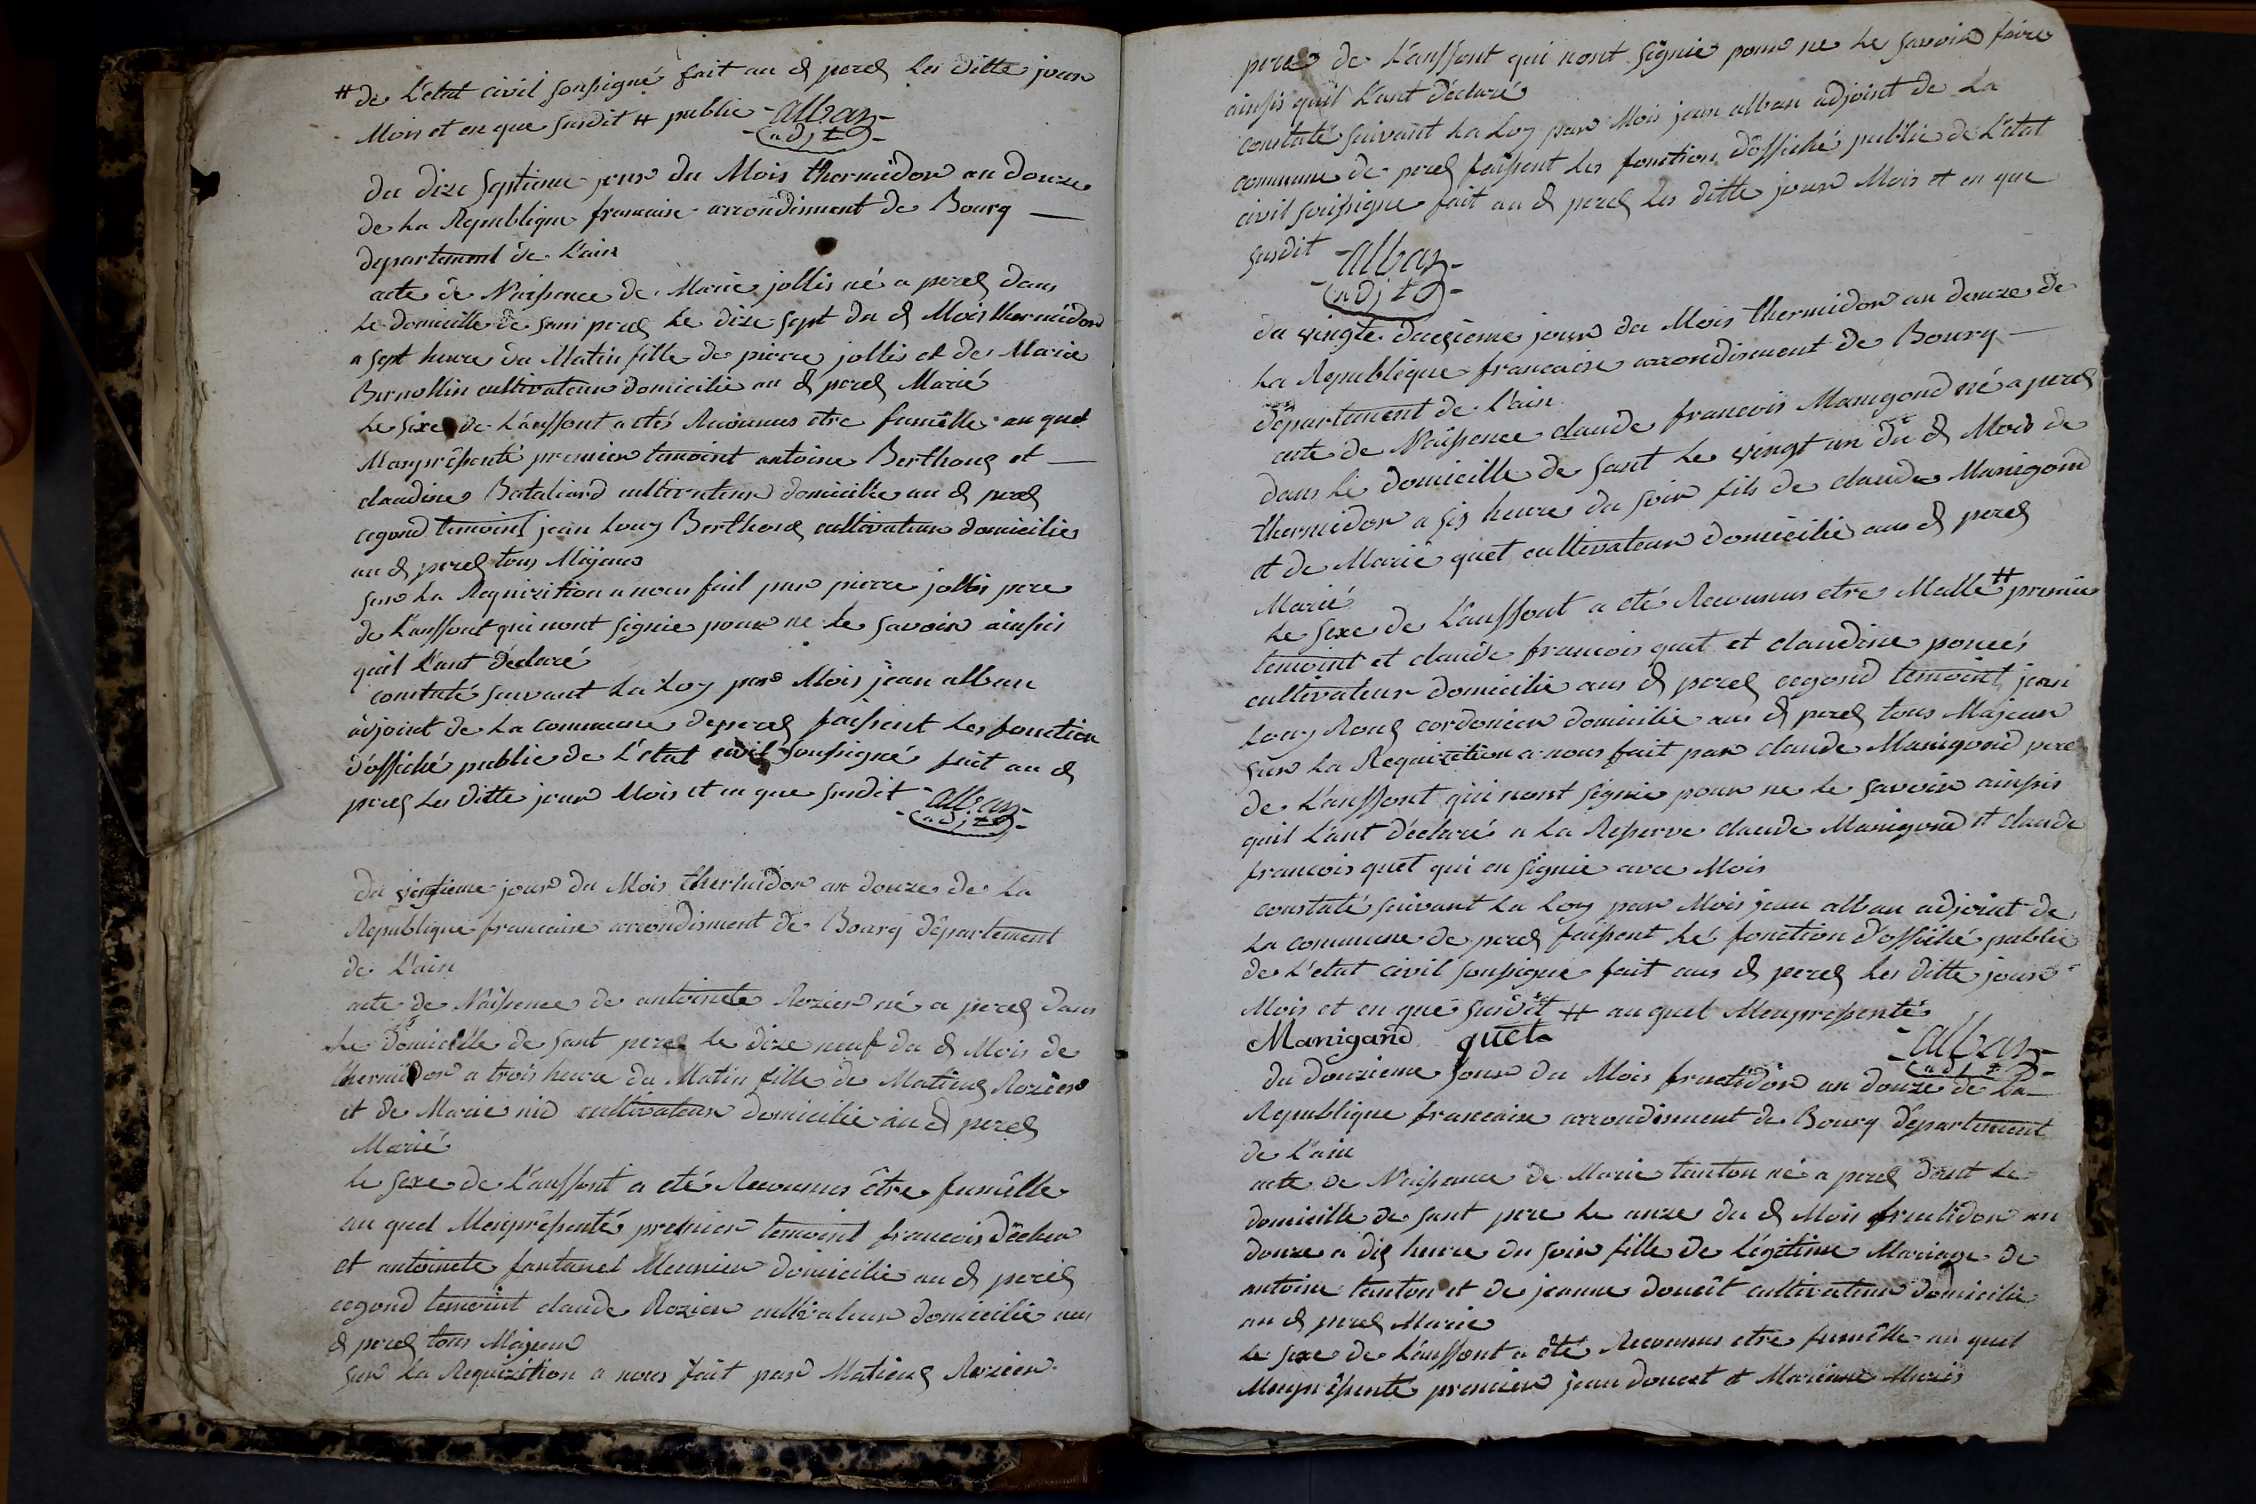 # de L'etat civil sousigné fait au d perex Les ditte jour
Mois et en que susdit # public - alban
adjt
du dize septieme jour du Mois thermidor an douze
de La Republique francaise arrondisment de Bourg
departement de L'ain
acte de Naissence de Marie jollis né a perex dans
Le domicille de son perex Le dize sept du d Mois thermidor
a sept heure du Matin fille de pierre jollis et de Marie
Bernollin cultivateur domicilie au d perex Marié
Le sexe de L'anffont a eté Reconnus etre fumêlle au quel
Menpréssenté premier temoint antoine Berthoux et
claudine Bataliard cultivateur domicilie au d perex
cegond temoint jean Louy Berthoux cultivateur domicilie
au d perex tous Majeur
sur La Requizition a nous fait par pierre jollis pere
de L'anffont qui nont signie pour ne Le savoir ainssis
quil L'ant déclaré
constaté suivant La Loy par Mois jean alban
adjoint de La commune de perex faissent Les fonction
d'offiché public de L'etat civil sousigné fait au d
perex Les ditte jour Mois et en que susdit - alban
adjt
du vingtieme jour du Mois thermidor an douze de La
Republique francaise arrondisment de Bourg département
de L'ain
acte de Naissence de antoinete Rozier né a perex dans
Le domicille de sont perex Le dize neuf du d Mois de
thermidor a trois heure du Matin fille de Matieux Rozier
et de Marie nid cultivateur domicilie au d perex
Marié
Le sexe de L'anffont a eté Reconnus être fumêlle
au quel Menpréssenté premier temoint francois
et antoinete fantanel Meunier domicilie au d perex
cegond temoint claude Rozier cultivateur domicilie au
d perex tous Majeur
sur La Requizition a nous fait par Matieux Rozier
pere de L'anffont qui nont signie pour ne Le savoir faire
ainssis quil L'ant déclaré
constaté suivant La Loy par Mois jean alban adjoint de La
commune de perex faissent Les fonction d'offiché public de L'etat
civil sousigne fait au d perex Les ditte jour Mois et en que
susdit - alban
adjt
du vingte deuxieme jour du Mois thermidor an douze de
La Republique francaise arrondisment de Bourg
département de L'ain
acte de Naissence claude francois Manigond né a perex
dans Le domicille de sont Le vingt un du d Mois de
thermidor a six heure du soir fils de claude Manigond
et de Marie quet cultivateur domicilie au d perex
Marié
Le sexe de L'anffont a eté Reconnus etre Malle # premier
temoint et claude francois quet et claudine poncés
cultivateur domicilie au d perex cegond temoint jean
Louy Roux cordonier domicilie au d perex tous Majeur
sur La Requizition a nous fait par claude Manigond pere
de L'anffont qui nont signie pour ne Le savoir ainssis
quil L'ant déclaré a La Resserve claude Manigond et claude
francois quet qui on signie avec Mois
constaté suivant La Loy par Mois jean alban adjoint de
La commune de perex faissent Lé fonction d'officihé public
de L'etat civil sousigné fait au d perex Les ditte jour
Mois et en que susdit # au quel Menpressenté
Manigand quet alban
adjt
du douzieme jour du Mois fructidor an douze de La
Republique francaise arrondisment de Bourg département
de L'ain
acte de Naissence de Marie tanton né a perex dont Le
domicille de sont pere Le onze du d Mois fructidor an
douze a dix heure du soir fille de Légitime Mariage de
antoine tanton et de jeanne doucêt cultivateur domicilie
au d perex Marie
Le sexe de L'anffont a été Reconnus etre fumêlle au quel
Menpréssenté premier jean doucet et Marianne